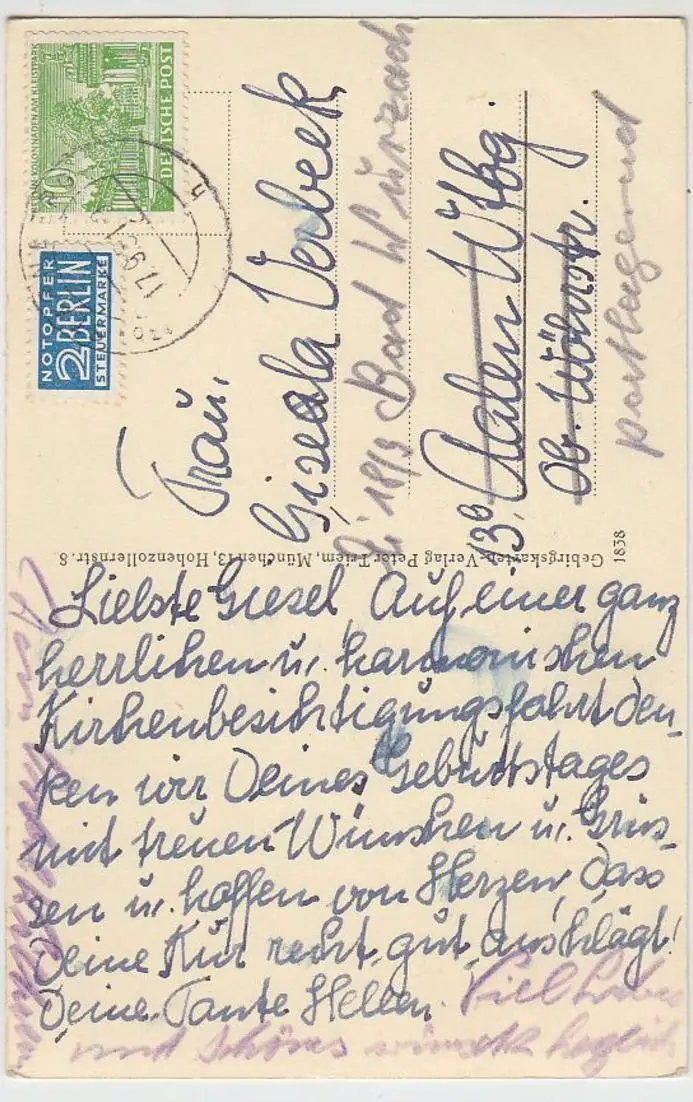 BERLIN KOLONNADEN AM KLEISTPARK
10
DEUTSCHE POST
NOTOPFER
2 BERLIN
STEUERMARKE
17.9.51
Frau,
Gisela Verbeek
18/3 Bad Wurzach
13b Aalen Wttbg.
Ob. Wöhrstr.
postlagernd
1838
Gebirgskarten-Verlag Peter Triem, München 13, Hohenzollernstr. 8
Liebste Giesel, Auf einer ganz
herrlichen u. harmonischen
Kirchenbesichtigungsfahrt den-
ken wir Deines Geburtstages
mit treuen Wünschen u. Grüs-
sen u. hoffen von Herzen, dass
Deine Kur recht gut anschlägt!
Deine Tante Hellen.
Viel Liebes
und Schönes wünscht herzlich